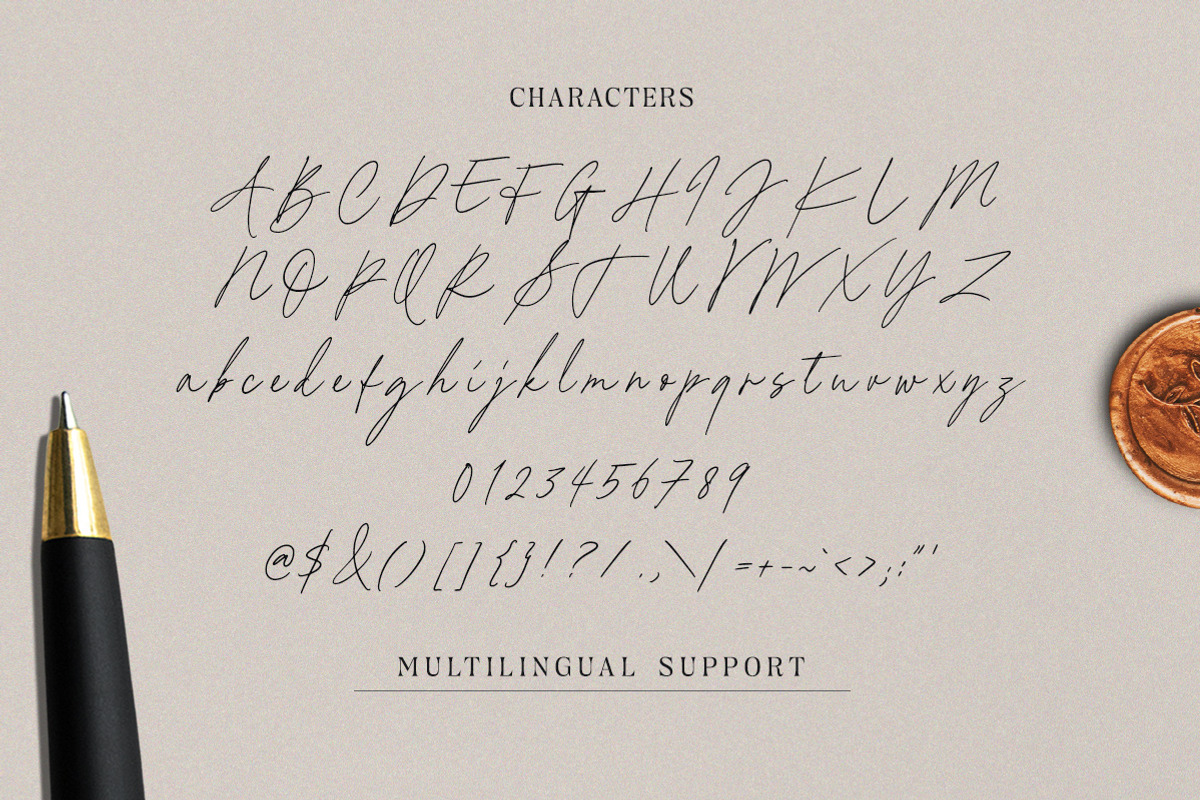 CHARACTERS
A B C D E F G H I J K L M
N O P Q R S T U V W X Y Z
a b c d e f g h i j k l m n o p q r s t u v w x y z
0 1 2 3 4 5 6 7 8 9
@ $ & ( ) [ ] { } ! ? / . , \ | = + - ~ ` < > ; : " '
MULTILINGUAL SUPPORT